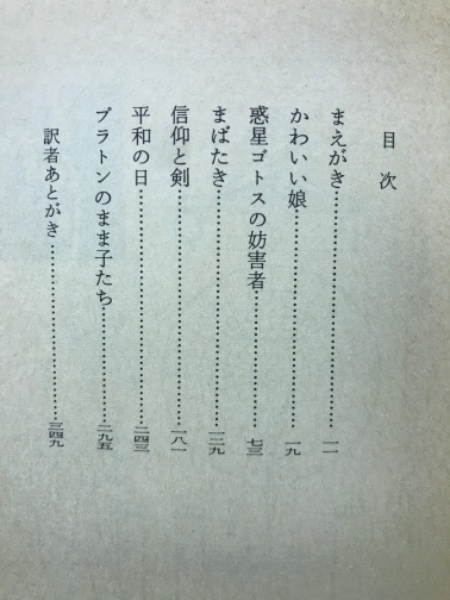 目次
まえがき……一一
かわいい娘……一九
惑星ゴトスの妨害者……七三
まばたき……一二九
信仰と剣……一八一
平和の日……二四三
プラトンのまま子たち……二九五
訳者あとがき……三四九